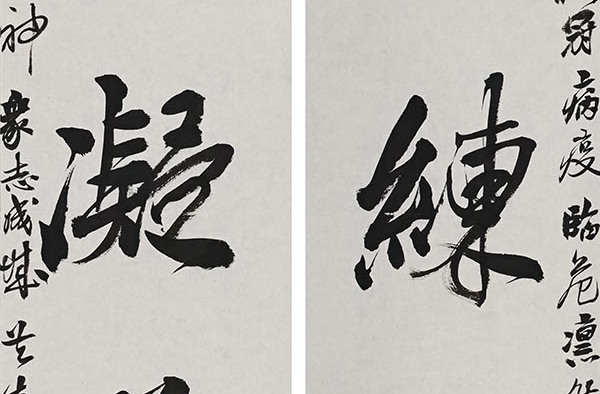 冠病疫臨危凛
練
凝
神衆志成城共